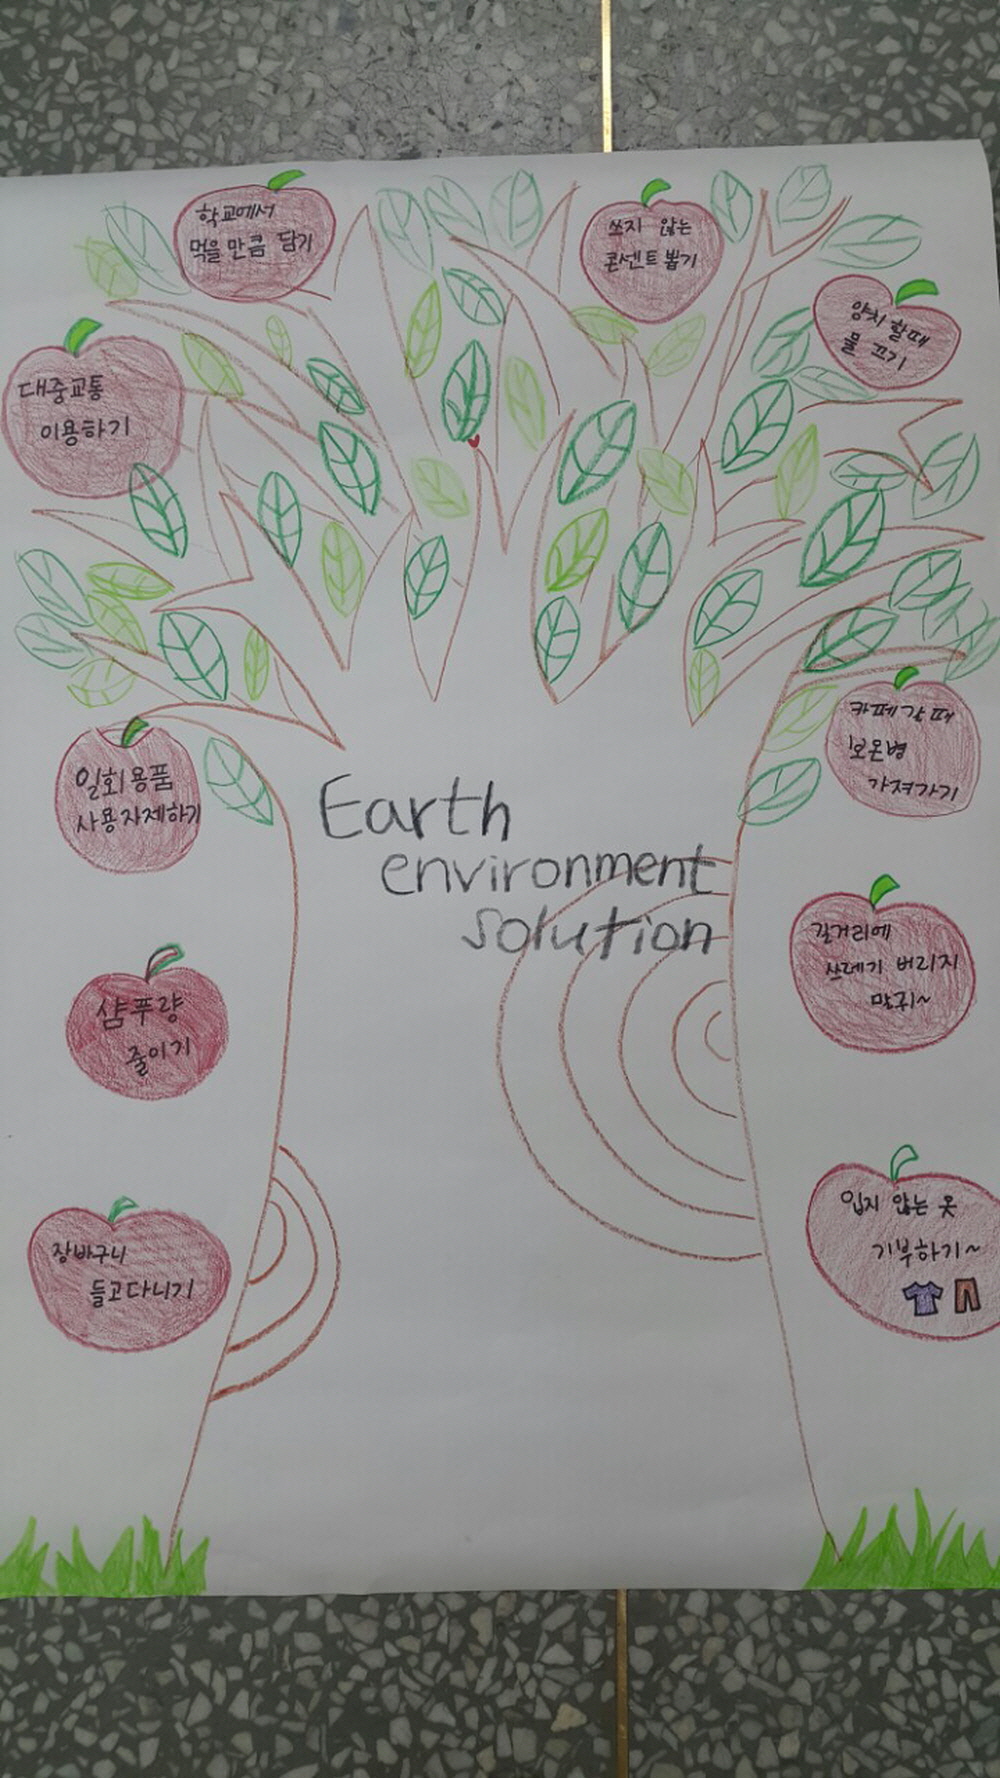 학교에서
먹을 만큼 담기
쓰지 않는
콘센트 뽑기
양치 할때
물 끄기
대중교통
이용하기
카페 갈 때
보온병
가져가기
일회용품
사용 자제하기
Earth
environment
solution
길거리에
쓰레기 버리지
말귀~
샴푸량
줄이기
입지 않는 옷
기부하기~
장바구니
들고다니기